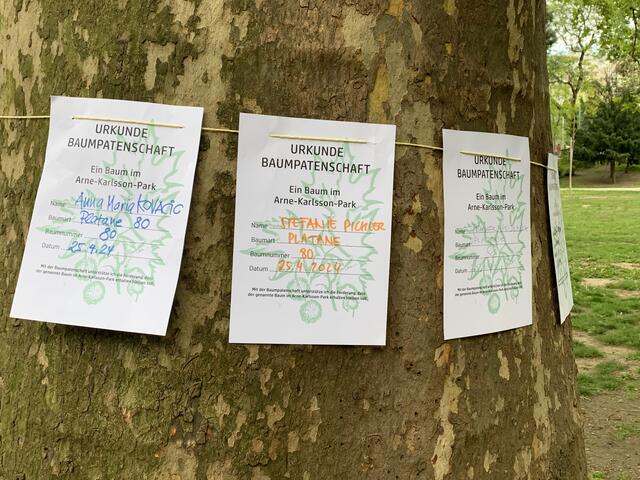 URKUNDE
BAUMPATENSCHAFT
Ein Baum im
Arne-Karlsson-Park
Name Anna Maria KOVACIC
Baumart Platane 80
Baumnummer 80
Datum 25.4.24
Mit der Baumpatenschaft unterstütze ich die Forderung, dass
der genannte Baum im Arne-Karlsson-Park erhalten bleiben soll.
URKUNDE
BAUMPATENSCHAFT
Ein Baum im
Arne-Karlsson-Park
Name STEFANIE PICHLER
Baumart PLATANE
Baumnummer 80
Datum 25.4.2024
Mit der Baumpatenschaft unterstütze ich die Forderung, dass
der genannte Baum im Arne-Karlsson-Park erhalten bleiben soll.
URKUNDE
BAUMPATENSCHAFT
Ein Baum im
Arne-Karlsson-Park
Name
Baumart
Baumnummer
Datum
Mit der Baumpatenschaft unterstütze ich die Forderung, dass
der genannte Baum im Arne-Karlsson-Park erhalten bleiben soll.